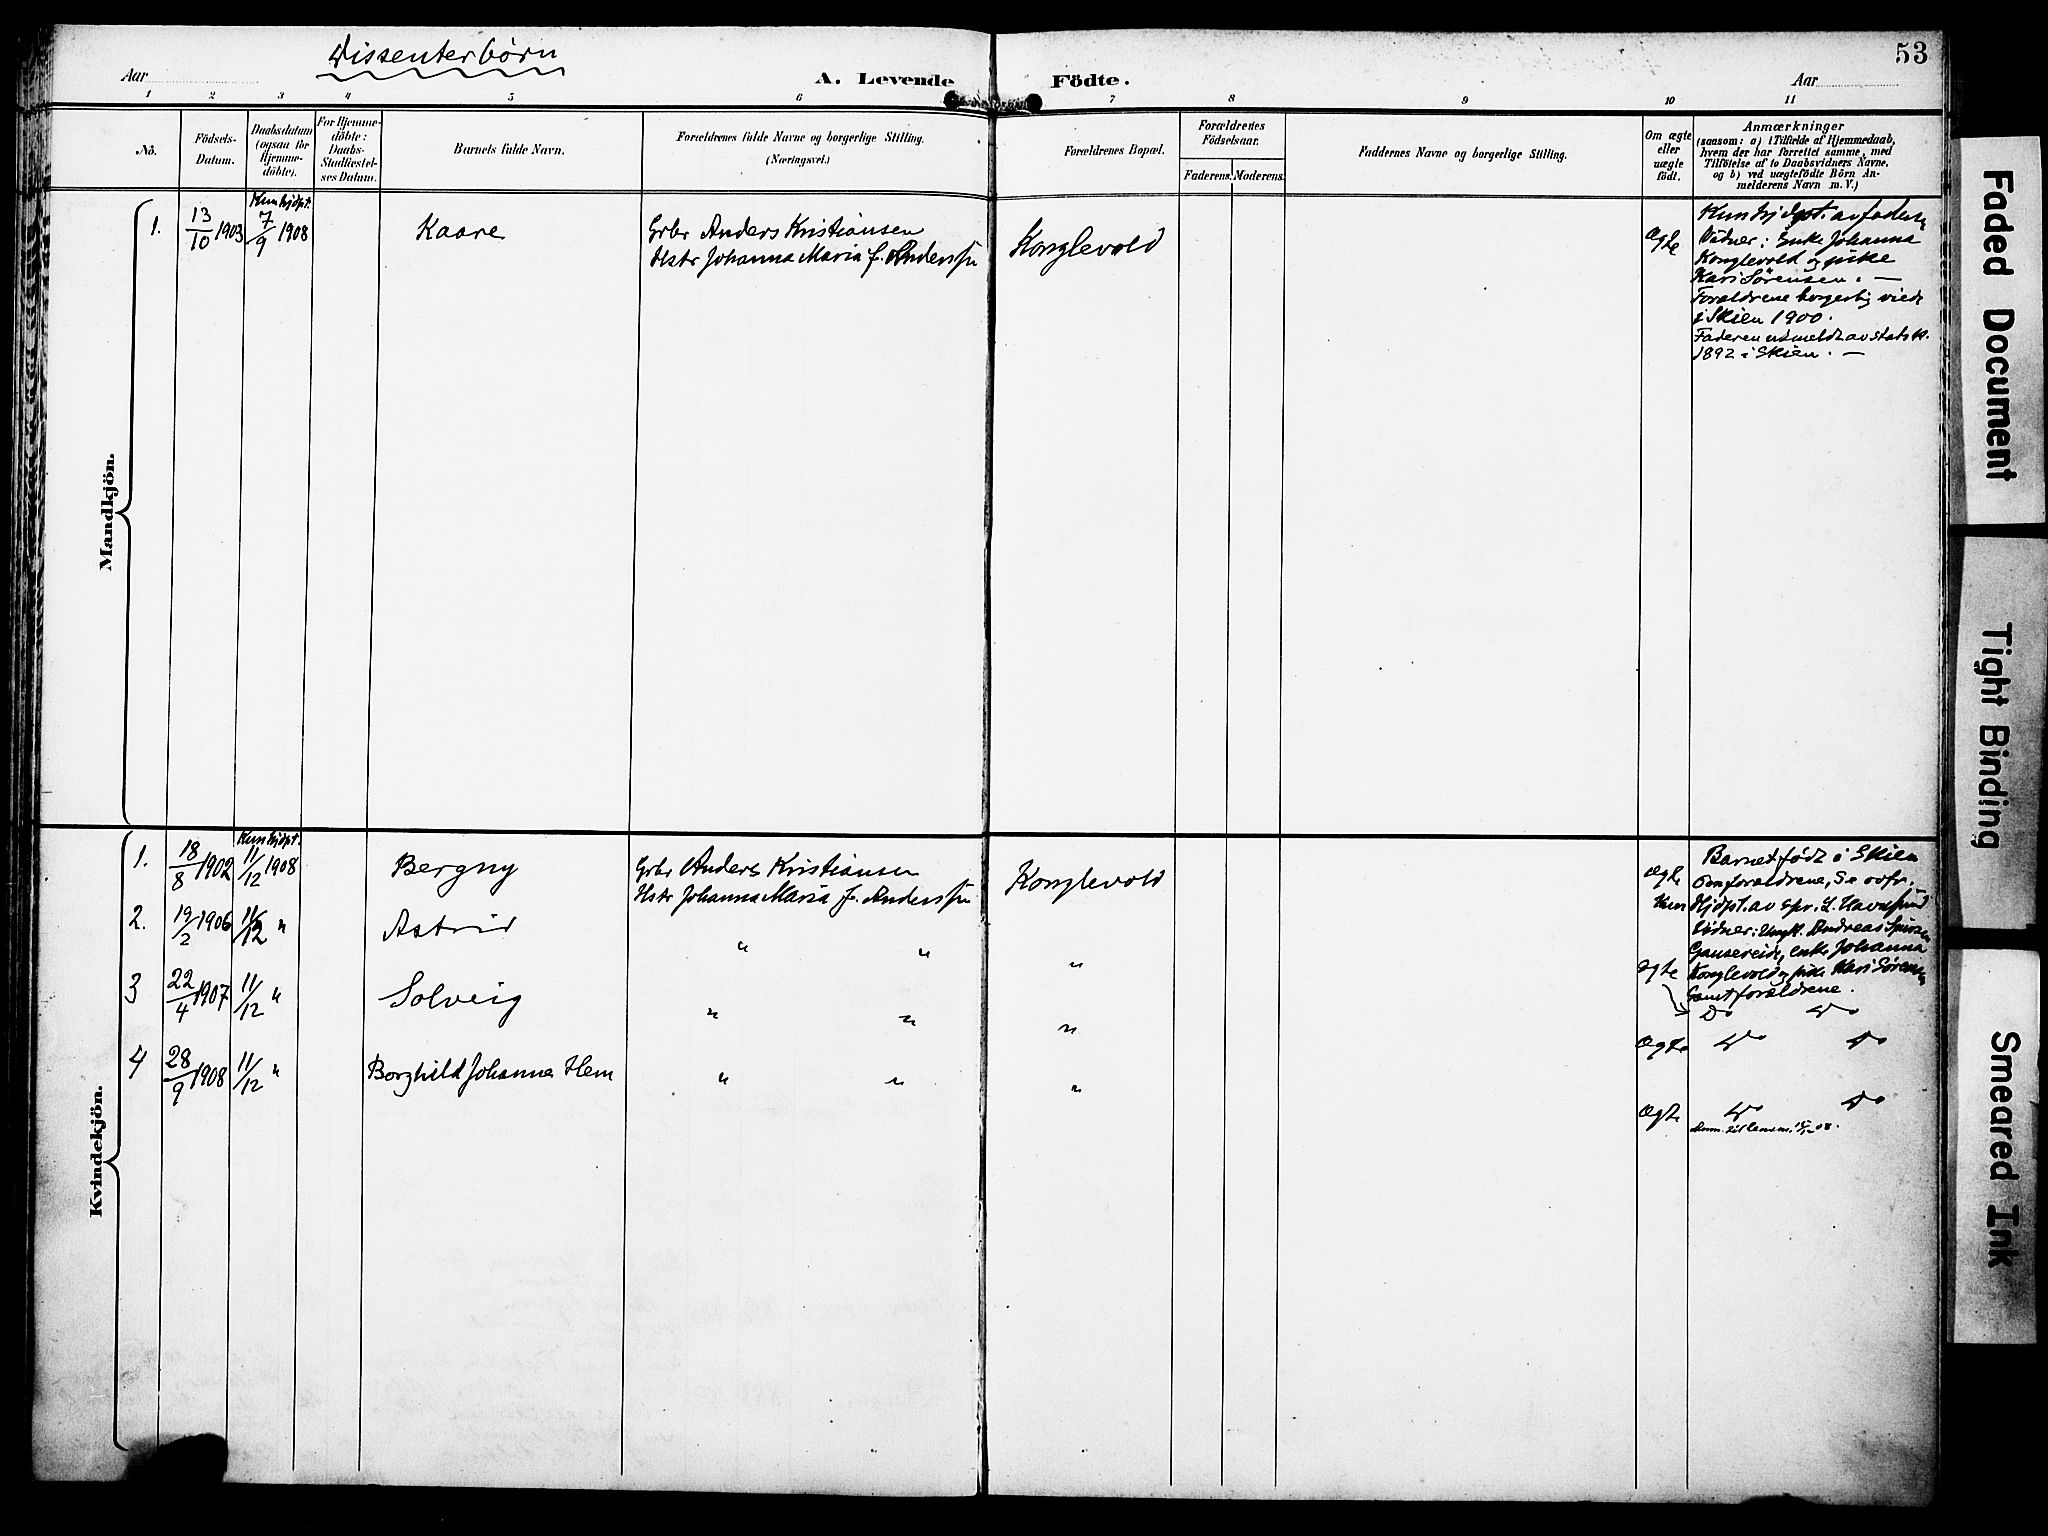 Dissenterbørn
53
Aar
A. Levende Födte.
Aar
1 2 3 4 5 6 7 8 9 10 11
No.
Födsels-
Datum.
Daabsdatum
(ogsaa for
Hjemme-
döbte).
For Hjemme-
döbte:
Daabs-
Stadfæstel-
ses Datum.
Barnets fulde Navn.
Forældrenes fulde Navne og borgerlige Stilling.
(Næringsvei.)
Forældrenes Bopæl.
Forældrenes
Födselsaar.
Faderens. Moderens.
Faddernes Navne og borgerlige Stilling.
Om ægte
eller
uægte
født.
Anmærkninger
(saasom: a) i Tilfælde af Hjemmedaab,
hvem der har forrettet samme, med
Tilföielse af to Daabsvidners Navne,
og b) ved uægtefödte Börn An-
melderens Navn m. V.)
Mandkjön.
Kun hjdpt.
1. 13/10 1903 7/9 1908 Kaare
Grbr Anders Kristiansen
Hstr Johanna Maria f. Anders
Konglevold
ægte
Kun hjdpt. av faderen
Vidner: Enke Johanna
Konglevold og pike
Kari Sørensen. —
Forældrene borgerlig viede
i Skien 1900.
Faderen utmeldt av statsk.
1892 i Skien. —
Kvindekjön.
Kun hjdpt.
1. 18/8 1902 11/12 1908 Bergny
Grbr Anders Kristiansen
Hstr Johanna Maria f. Anders
Konglevold
ægte
Barnet født i Skien
Om forældrene, se ovfr.
Kun Hjdpt. av spr. L.
Vidner: Ungk. Andreas
enke Johanna
Konglevold og pike Kari Sørensen
Samt forældrene.
2. 19/2 1906 11/12 " Astrid " " "
ægte Do Do
3 22/4 1907 11/12 " Solveig " " "
ægte Do Do
4 28/9 1908 11/12 " Borghild Johanne Hem " " "
ægte Do Do
08.
Faded Document
Tight Binding
Smeared Ink